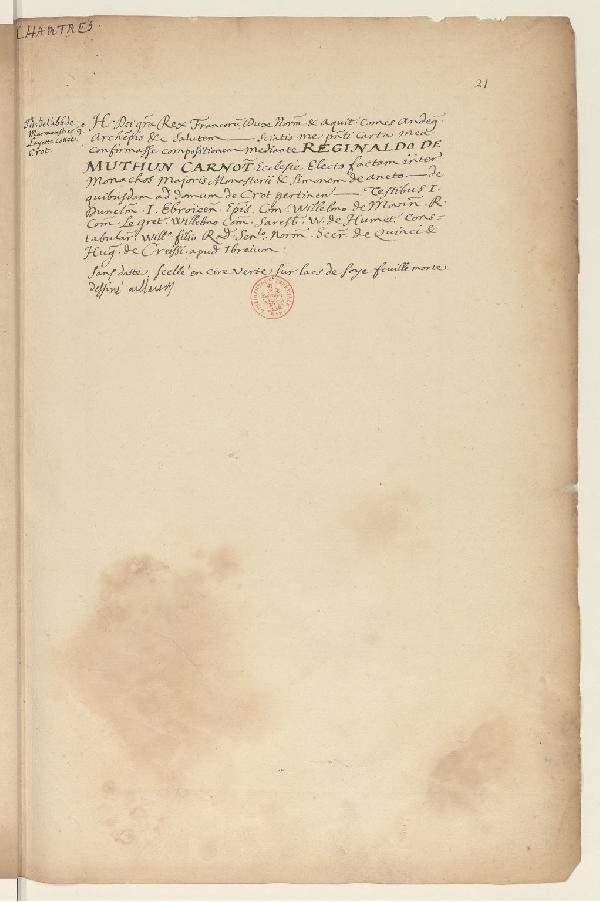 CHARTRES
21
H. Dei grã Rex Francorũ Dux Norm̃ & Aquit. Comes Andeg.
Archep̃is &c Salutem —— Sciatis me p̃nti Carta mea
Confirmasse compositionem Mediante REGINALDO DE
MUTHUN CARNOT̃. Ecclesie Electo factam inter
Monachos Majoris Monasterii & Simonem de aneto — de
quibusdam ad domum de Crot pertinen —— Testibus I.
I. Ebroicen̄ Ep̃is. Com̃. Willelmo de R.
Com̃. Willelmo Com̃. Saresb. W. de Humet Cons-
tabular. Will.o filio Rad. Sen.lo Norm̃. de Quinci &
Hug. de apud Ibreium
Sans datte, scellé en cire verte, sur lacs de soye feuille morte
dessiné ailleurs
Crot